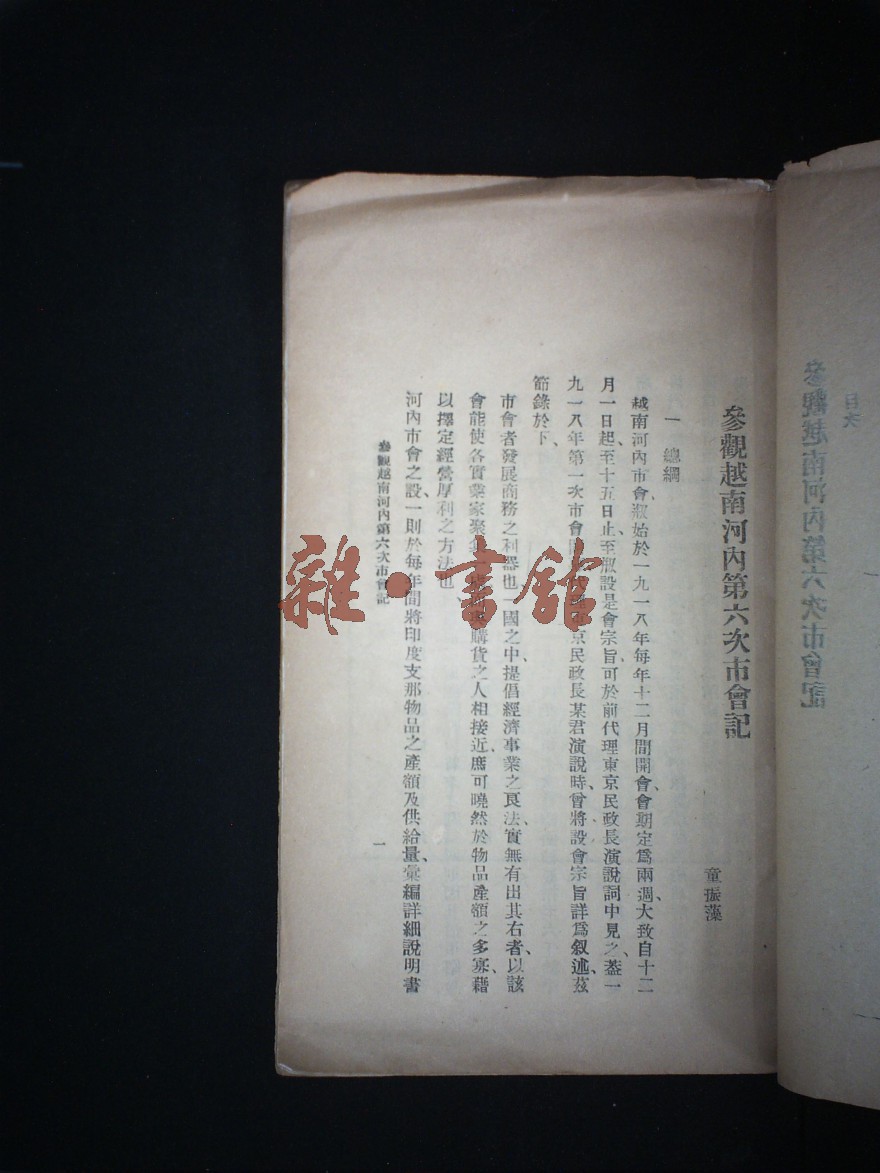 參觀越南河內第六次市會記
童振藻
一 總綱
越南河內市會、瓶始於一九一八年每年十二月間開會、會期定爲兩週、大致自十二
月一日起、至十五日止、至瓶設是會宗旨、可於前代理東京民政長演說詞中見之、葢一
九一八年第一次市會 京民政長某君演說時、曾將設會宗旨詳爲叙述、茲
節錄於下、
市會者發展商務之利器也、一國之中、提倡經濟事業之良法、實無有出其右者、以該
會能使各實業家聚 購貨之人相接近、庶可曉然於物品產額之多寡、藉
以擇定經營厚利之方法也、
河內市會之設、一則於每年間將印度支那物品之產額及供給量、彙編詳細說明書
參觀越南河內第六次市會記
一
雜·書館
目次
參觀越南河內第六次市會記